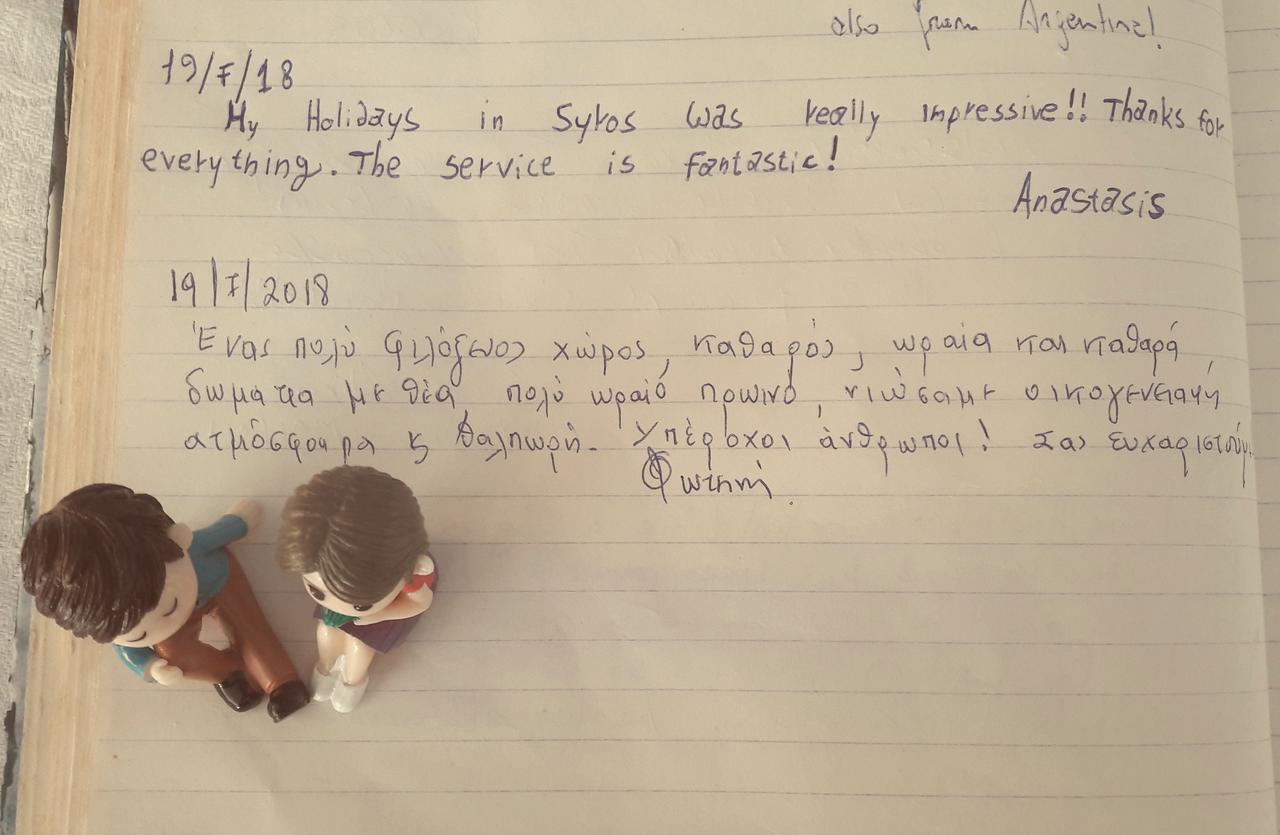 also from Argentine!
19/7/18
My Holidays in Syros was really impressive!! Thanks for
everything. The service is fantastic!
Anastasis
19/7/2018
Ένας πολύ φιλόξενος χώρος, καθαρός, ωραία και καθαρά
δωμάτια με θέα, πολύ ωραίο πρωινό, νιώσαμε οικογενειακή
ατμόσφαιρα & θαλπωρή. Υπέροχοι άνθρωποι! Σας ευχαριστούμε
Φωτεινή.